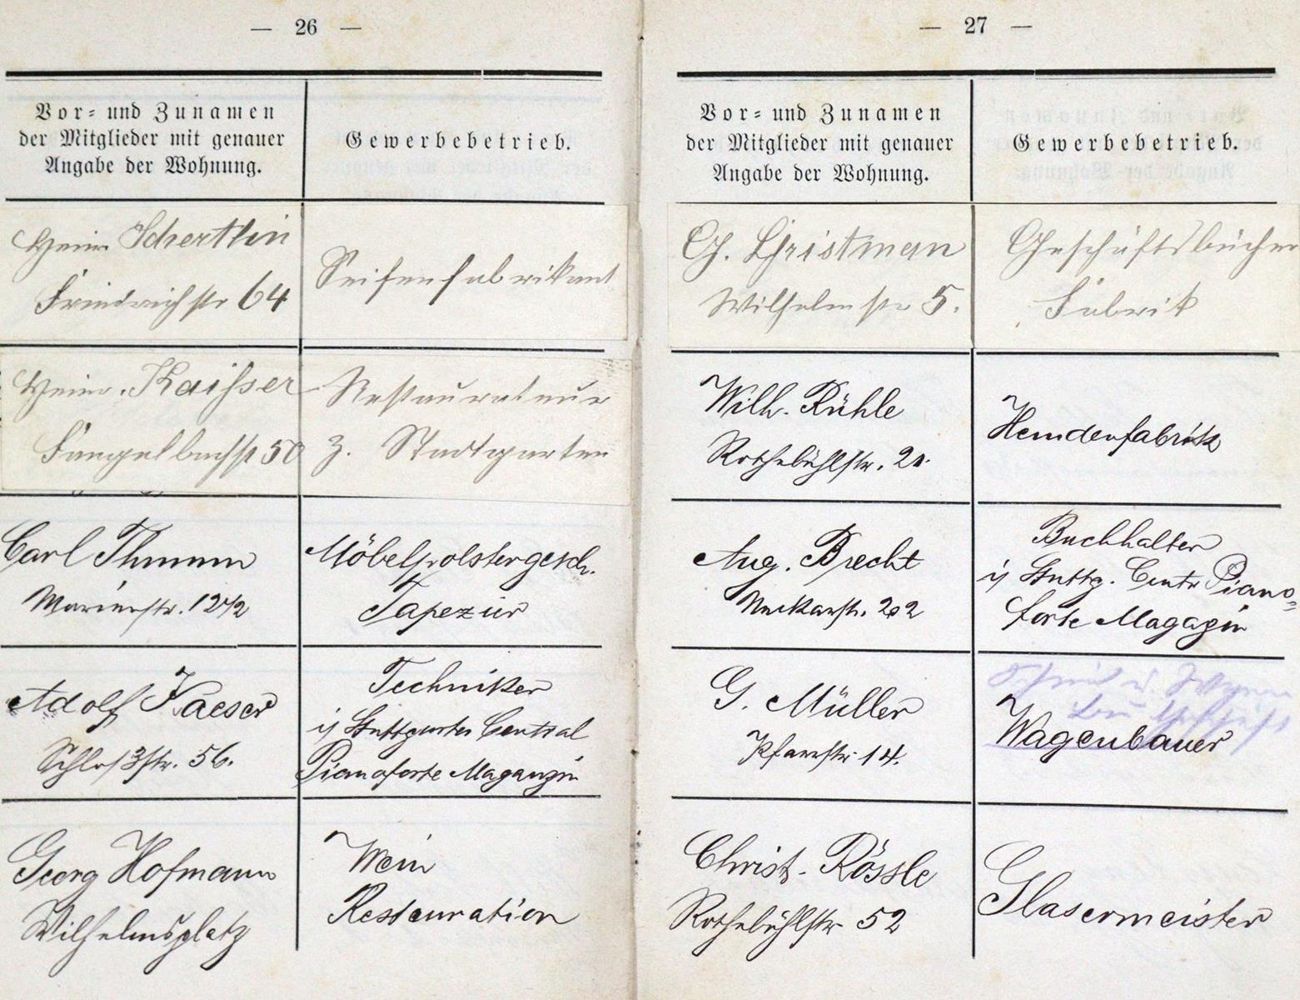 — 26 —
Vor= und Zunamen
der Mitglieder mit genauer
Angabe der Wohnung.
Gewerbebetrieb.
Heinr. Schertlin
Friedrichstr 64
Seifenfabrikant
Heinr. Kaisser
50
Restaurateur
z. Stadtgarten
Carl Thumm
Marienstr. 12
Möbelpolstergesch.
Tapezier
Adolf Kaeser
Schloßstr. 56.
Techniker
Stuttgarter Central
Pianoforte Maganzin
Georg Hofmann
Wilhelmsplatz
Wein
Restauration
— 27 —
Vor= und Zunamen
der Mitglieder mit genauer
Angabe der Wohnung.
Gewerbebetrieb.
Ch. Christman
Wilhelmstr 5.
Geschäftsbücher
Fabrik
Wilh. Rühle
Rothebühlstr.
Hemdenfabrik
Aug. Brecht
Neckarstr. 202
Buchhalter
Stuttg. Centr Piano=
forte Magazin
G. Müller
Pfarrstr 14.
Wagenbauer
Christ. Rössle
Rothebühlstr 52
Glasermeister